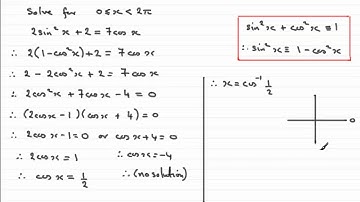 Solve for 0 ≤ x < 2π
2sin²x + 2 = 7cosx
∴ 2(1-cos²x)+2 = 7cosx
∴ 2 - 2cos²x + 2 = 7cosx
∴ 2cos²x + 7cosx - 4 = 0
∴ (2cosx - 1)(cosx + 4) = 0
∴ 2cosx - 1 = 0 or cosx + 4 = 0
∴ 2cosx = 1 ∴ cosx = -4
∴ cosx = 1/2 ∴ (no solution)
sin²x + cos²x ≡ 1
∴ sin²x ≡ 1 - cos²x
∴ x = cos⁻¹ 1/2
0